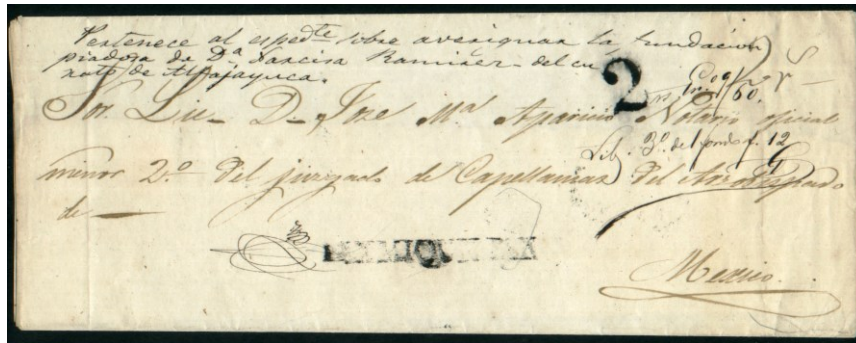 Pertenece al espedte sobre averiguar la fundación
piadosa de Da Narcisa Ramirez - del cu
rato de Alfajayuca.
2
Sor. Lic_ D_ Jose Ma. Aparicio Notario oficial
60.
Lib. 3o. del fondo f. 12
menor 2o. del juzgado de Capellanias del Arzobispado
de —
Mexico.